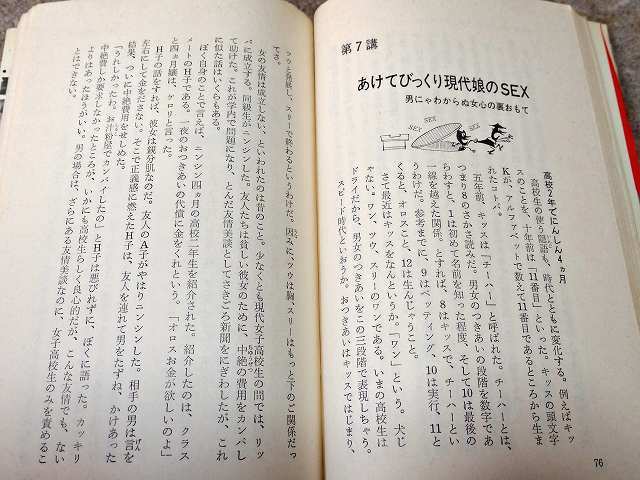 第7講
あけてびっくり現代娘のSEX
男にゃわからぬ女心の裏おもて
SEX
SEX
SEX
高校2年でにんしん4ヵ月
高校生の使う隠語も、時代とともに変化する。例えばキッ
スのことを、十年前は「11番目」といった。キッスの頭文字
Kが、アルファベットで数えて11番目であるところから生ま
れたコトバ。
五年前、キッスは「チーハー」と呼ばれた。チーハーとは、
つまり8のさかさ読みだ。男女のつきあいの段階を数字であ
らわすと、1は初めて名前を知った程度、そして10は最後の
一線を越えた関係。とすれば、8はキッスで、チーハーとい
うわけだ。参考までに、9はペッティング、10は実行、11と
くると、オロスこと、12は生んじゃうこと。
さて最近はキッスをなんというか。「ワン」という。犬じ
ゃない。ワン、ツウ、スリーのワンである。いまの高校生は
ドライだから、男女のつきあいをこの三段階で表現しちゃう。
スピード時代というおうか。おつきあいはキッスではじまり、
76
ツウと発展し、スリーで終わるというわけだ。因みに、ツウは胸、スリーはもっと下のご関係だっ
てさ。
女の友情は成立しない、といわれたのは昔のこと。少なくとも現代女子高校生の間では、リッ
パに成立する。同級生がニンシンした。友人たちは貧しい彼女のために、中絶の費用をカンパし
て助けた。これが学内で問題になり、とんだ友情美談としてさきごろ新聞をにぎわしたが、これ
に似た話はいくらもある。
ぼく自身のことで言えば、ニンシン四ヵ月の高校二年生を紹介された。紹介したのは、クラス
メートのH子である。一夜のおつきあいの代償に金をくれという。「オロスお金が欲しいのよ」
と四ヵ月嬢は、ケロリと言った。
H子の話をすれば、彼女は親分肌なのだ。友人のA子がやはりニンシンした。相手の男は言を
左右にして金をださない。そこで正義感に燃えたH子は、友人を連れて男をたずね、かけあった
結果、ついに中絶費用をせしめた。
「うれしかったわ。お汁粉屋でカンパイしたの」とH子は悪びれずに、ぼくに語った。カッキリ
中絶費しか要求しなかったところが、いかにも高校生らしく良心的だが、こんな友情でも、ない
よりはあったほうがいい。男の場合は、さらにある友情美談なのに、女子高校生のみを責めるこ
とはできない。